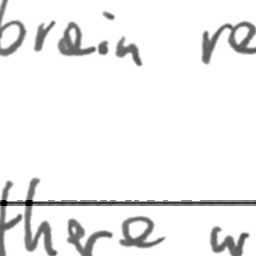 brain re
there w